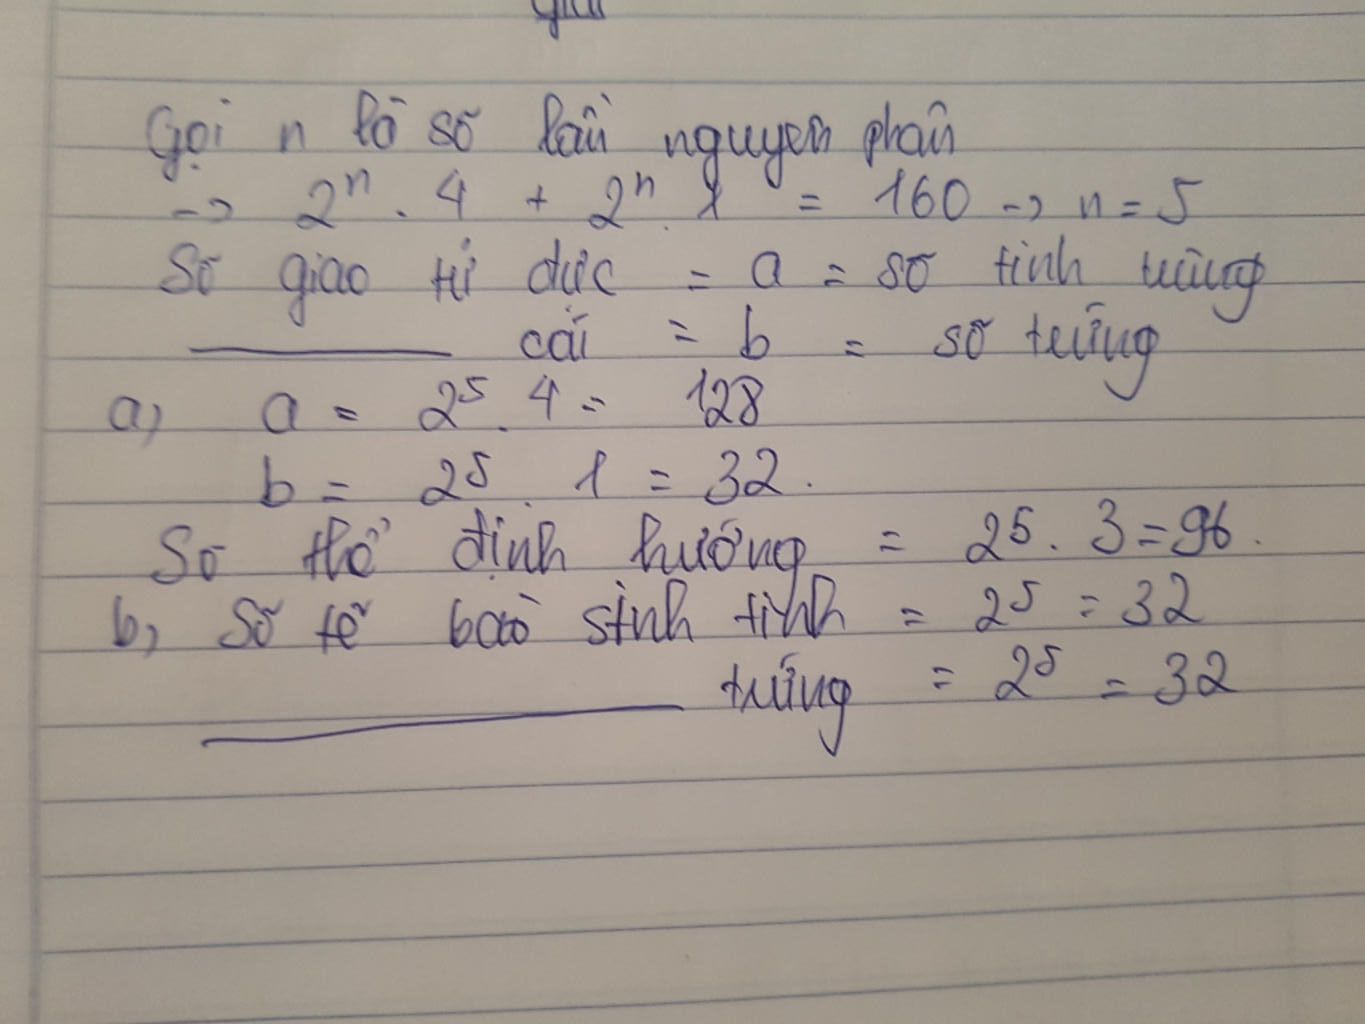 giải
Gọi n là số lần nguyên phân
-> 2ⁿ . 4 + 2ⁿ . 1 = 160 -> n = 5
Số giao tử đực = a = số tinh trùng
——— cái = b = số trứng
a, a = 2⁵ . 4 = 128
b = 2⁵ . 1 = 32.
Số thể định hướng = 2⁵ . 3 = 96.
b, Số tế bào sinh tinh = 2⁵ = 32
——— trứng = 2⁵ = 32